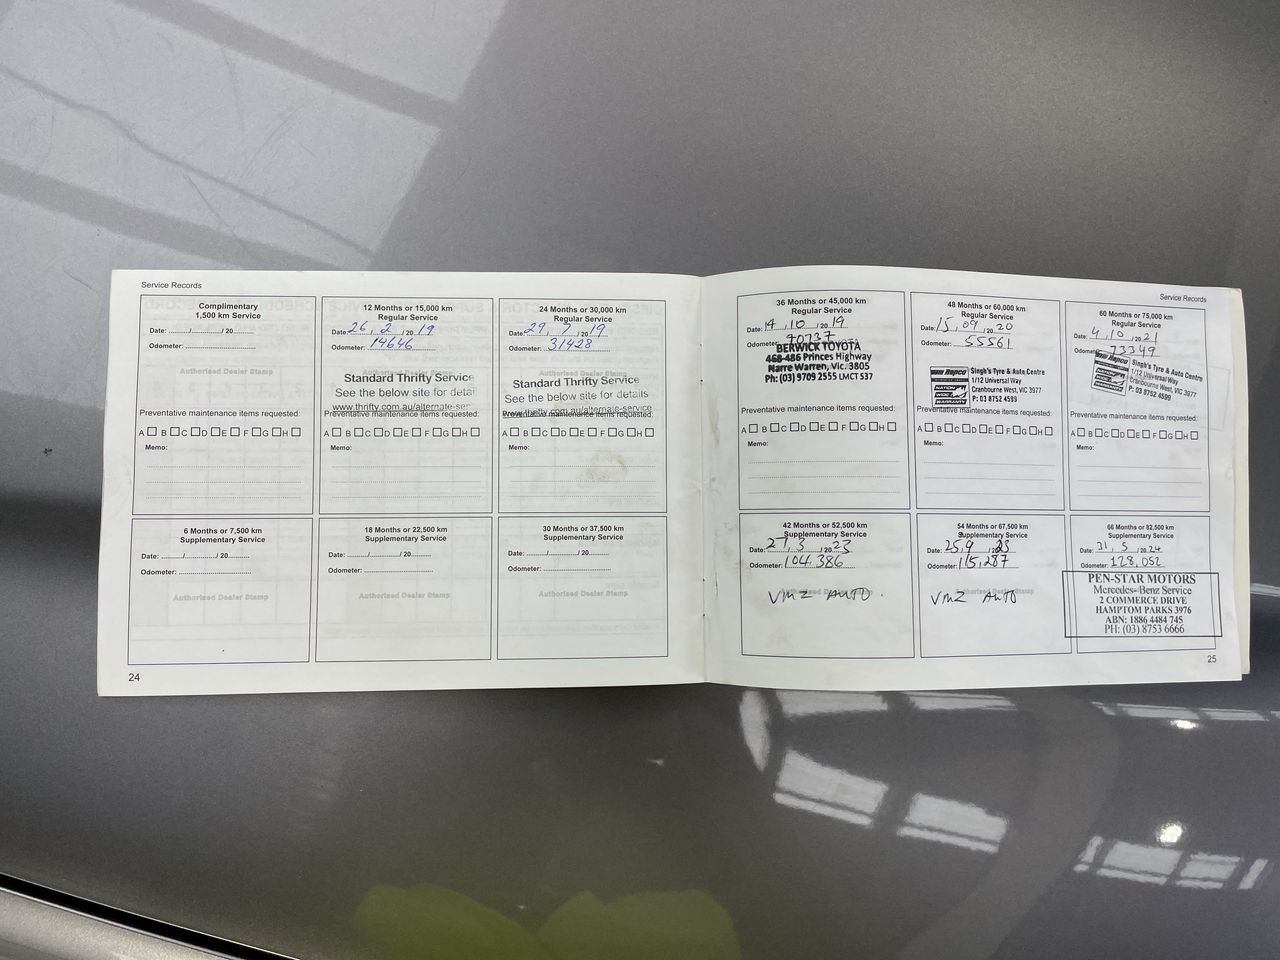 Service Records
Complimentary
1,500 km Service
Date: ......../........./ 20......
Odometer: ................................
Preventative maintenance items requested:
A □ B □ C □ D □ E □ F □ G □ H □
Memo:
12 Months or 15,000 km
Regular Service
Date: 26 / 2 / 20 19
Odometer: 14646
Authorised Dealer Stamp
Standard Thrifty Service
See the below site for detai
www.thrifty.com.au/alternate-ser
Preventative maintenance items requested:
A □ B □ C □ D □ E □ F □ G □ H □
Memo:
24 Months or 30,000 km
Regular Service
Date: 29 / 7 / 20 19
Odometer: 31428
Authorised Dealer Stamp
Standard Thrifty Service
See the below site for details
www.thrifty.com.au/alternate-service
Preventative maintenance items requested:
A □ B □ C □ D □ E □ F □ G □ H □
Memo:
6 Months or 7,500 km
Supplementary Service
Date: ......../............../ 20......
Odometer: ................................
Authorised Dealer Stamp
18 Months or 22,500 km
Supplementary Service
Date: ......../............../ 20......
Odometer: ................................
Authorised Dealer Stamp
30 Months or 37,500 km
Supplementary Service
Date: ......../............../ 20......
Odometer: ................................
Authorised Dealer Stamp
24
Service Records
36 Months or 45,000 km
Regular Service
Date: 14 / 10 / 20 19
Odometer: 40737
BERWICK TOYOTA
468-486 Princes Highway
Narre Warren, Vic. 3805
Ph: (03) 9709 2555 LMCT 537
Preventative maintenance items requested:
A □ B □ C □ D □ E □ F □ G □ H □
Memo:
48 Months or 60,000 km
Regular Service
Date: 15 / 09 / 20 20
Odometer: 55561
Repco
NATION
WIDE
WARRANTY
Singh's Tyre & Auto Centre
1/12 Universal Way
Cranbourne West, VIC 3977
P: 03 8752 4599
Preventative maintenance items requested:
A □ B □ C □ D □ E □ F □ G □ H □
Memo:
60 Months or 75,000 km
Regular Service
Date: 4 / 10 / 20 21
Odometer: 73349
Repco
NATION
WIDE
WARRANTY
Singh's Tyre & Auto Centre
1/12 Universal Way
Cranbourne West, VIC 3977
P: 03 8752 4599
Preventative maintenance items requested:
A □ B □ C □ D □ E □ F □ G □ H □
Memo:
42 Months or 52,500 km
Supplementary Service
Date: 27 / 3 / 20 23
Odometer: 104,386
Authorised Dealer Stamp
VMZ AUTO.
54 Months or 67,500 km
Supplementary Service
Date: 25 / 9 / 20 23
Odometer: 115,287
VMZ AUTO
66 Months or 82,500 km
Supplementary Service
Date: 31 / 5 / 20 24
Odometer: 128,052
PEN-STAR MOTORS
Mercedes-Benz Service
2 COMMERCE DRIVE
HAMPTOM PARKS 3976
ABN: 1886 4484 745
PH: (03) 8753 6666
25